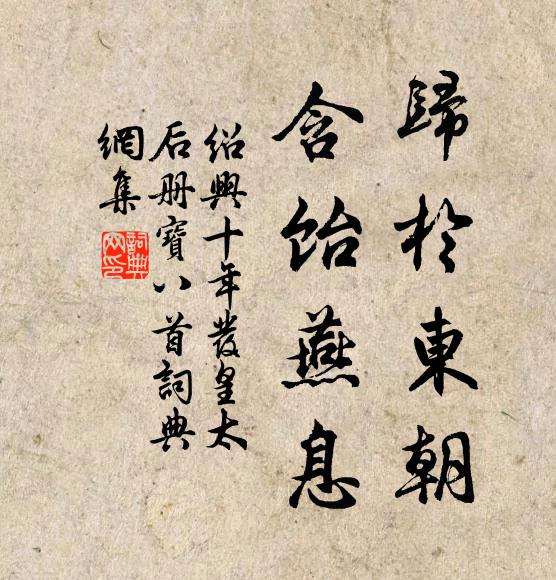 歸於東朝
含飴燕息
紹興十年發皇太
后册寶八首詞典
網集
詞典
網印